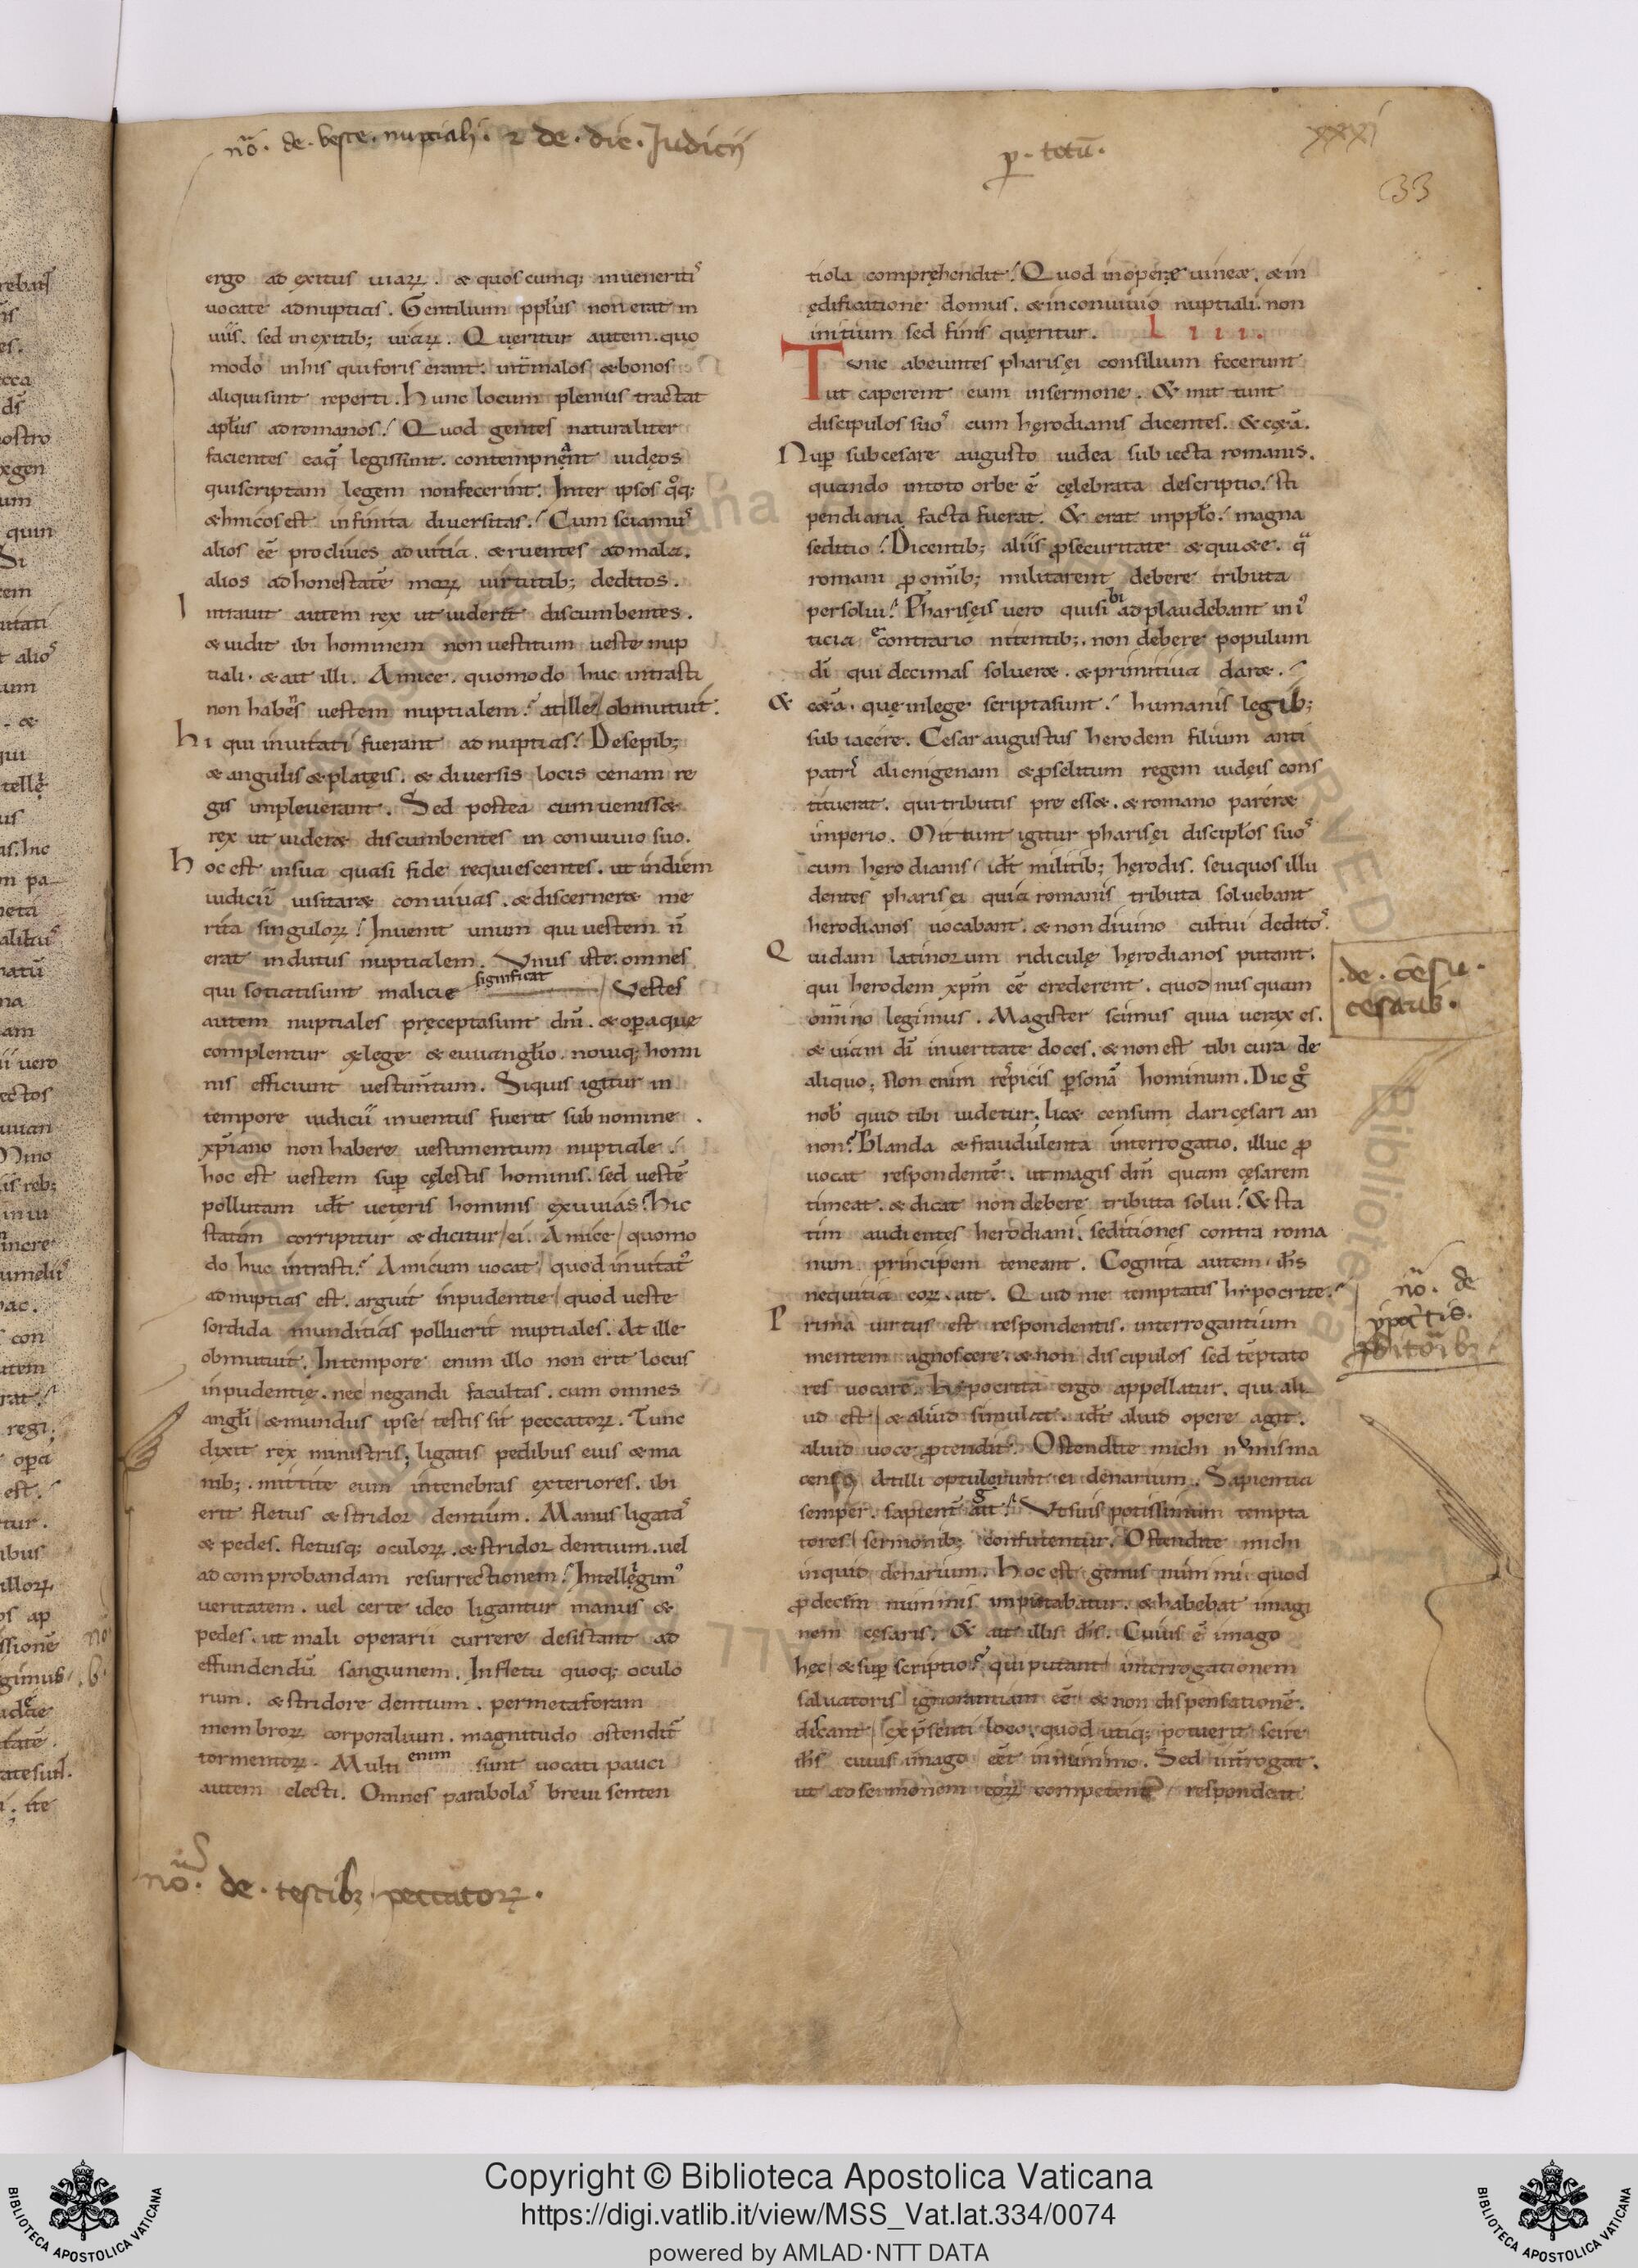 nõ. de. veste. nuptiali. ⁊ de. die. Judicij
p. totũ.
xxxi
33
ergo ad exitus uiaꝝ. & quoscumq; inueneritis
uocate adnuptias. Gentilium pplus non erat in
uiis. sed inexitib; uiaꝝ. Queritur autem. quo
modo inhis qui foris erant. int malos & bonos
aliqui sint reperti. Hunc locum plenius tractat
apls adromanos. Quod gentes naturaliter
facientes eaq̃ legis sunt. contempnent iudeos
qui scriptam legem nonfecerint. Inter ipsos qoq;
æhnicos est infinita diuersitas. Cum sciamus
alios eẽ procliues aduitia. & ruentes ad mala.
alios ad honestatẽ moꝝ uirtutib; deditos.
Intrauit autem rex ut uiderét discumbentes.
& uidit ibi hominem non uestitum ueste nup
tiali. & ait illi. Amice. quomodo huc intrasti
non habens uestem nuptialem. at ille obmutuit.
Hi qui inuitati fuerant ad nuptias. Desepib;
& angulis & plateis. & diuersis locis cenam re
gis impleuerant. Sed postea cum uenisset
rex ut uideret discumbentes in conuiuio suo.
Hoc est insua quasi fide requiescentes. ut indiem
iudicii uisitaret conuiuas. & discerneret me
rita singuloꝝ. Inuenit unum qui uestem ñ
erat indutus nuptialem. Vnus iste. omnes
qui sociati sunt malicie significat Vestes
autem nuptiales precepta sunt dñi. & opa que
complentur ex lege & euuanglio. nouiq; homi
nis efficiunt uestimtum. Siquis igitur in
tempore iudicii inuentus fuerit sub nomine
xpiano non habere uestimentum nuptiale.
hoc est uestem sup celestis hominis. sed uestẽ
pollutam idt ueteris hominis exuuias. Hic
statim corripitur & dicitur ei. Amice quomo
do huc intrasti. Amicum uocat quod inuitatus
adnuptias est. arguit inpudentie quod ueste
sordida munditias polluerit nuptiales. At ille
obmutuit. Intempore enim illo non erit locus
inpudentie. nec negandi facultas. cum omnes
angli & mundus ipse testis sit peccatoꝝ. Tunc
dixit rex ministris; ligatis pedibus eius & ma
nib;. mittite eum intenebras exteriores. ibi
erit fletus & stridor dentium. Manus ligatas
& pedes. fletusq; oculoꝝ. & stridor dentium. uel
ad comprobandam resurrectionem. Intellegimus
ueritatem. uel certe ideo ligantur manus &
pedes. ut mali operarii currere desistant ad
effundendũ sanguinem. Infletu quoq; oculo
rum. & stridore dentium. permetaforam
membroꝝ corporalium. magnitudo ostendit
tormentoꝝ. Multi enim sunt uocati pauci
autem electi. Omnes parabolas breui senten
nõ. de. testibꝫ peccatoꝝ.
tiola comprehendit. Quod inopere uineæ. & in
edificatione domus. & inconuiuio nuptiali. non
initium sed finis queritur. LIII.
Tunc abeuntes pharisei consilium fecerunt
ut caperent eum insermone. & mittunt
discipulos suos cum herodianis dicentes. & cetã.
Nup subcesare augusto iudea subiecta romanis.
quando intoto orbe ẽ celebrata descriptio. sti
pendiaria facta fuerat. & erat inpplo. magna
seditio. Dicentib; aliis psecuritate & quiete. qa
romani p omib; militarent debere tributa
persolui. Phariseis uero qui sibi adplaudebant inius
ticia econtrario nitentib;. non debere populum
di qui decimas solueret. & primitiua daret.
& cetã. que inlege scripta sunt. humanis legib;
sub iacere. Cesar augustus herodem filium anti
patris alienigenam & pselitum regem iudeis cons
tituerat. qui tributis pre esset. & romano pareret
imperio. Mittunt igitur pharisei disciplos suos
cum herodianis idt militib; herodis. seuquos illu
dentes pharisei quia romanis tributa soluebant
herodianos uocabant. & non diuino cultui deditos.
Quidam latinorum ridicule herodianos putant.
qui herodem xpm eẽ crederent. quod nus quam
omino legimus. Magister scimus quia uerax es.
& uiam di inueritate doces. & non est tibi cura de
aliquo; Non enim respicis psonã hominum. Dic go
nob quid tibi uidetur. licet censum dari cesari an
non. Blanda & fraudulenta interrogatio. illuc p
uocat respondentẽ. ut magis dm quam cesarem
timeat. & dicat non debere tributa solui. & sta
tim audientes herodiani. seditiones contra roma
num principem teneant. Cognita autem ihs
nequitia eoꝝ. ait. Quid me temptatis hypocrite.
Prima uirtus est respondentis. interrogantium
mentem agnoscere. & non discipulos sed tẽptato
res uocare. Hypocrita ergo appellatur. qui ali
ud est & aliud simulat. idt aliud opere agit.
aliud uoce ptendit. Ostendite michi numisma
census. At illi optulerunt ei denarium. Sapientia
semper. sapient agit. Vt suis potissimum tempta
tores sermonib; confutentur. Ostendite michi
inquid denarium. Hoc est genus nummi. quod
pdecim nummis imputabatur. & habebat imagi
nem cesaris. & ait illis ihs. Cuius ẽ imago
hec & sup scriptio. qui putant interrogationem
saluatoris ignorantiam eẽ & non dispensationẽ.
dicant ex psenti loco. quod utiq; potuerit scire
ihs cuius imago eet innummo. Sed introgat.
ut ad sermonem eoꝝ competent respondeat.
.de. cẽsu.
cesarib.
nõ. de
ypoctis.